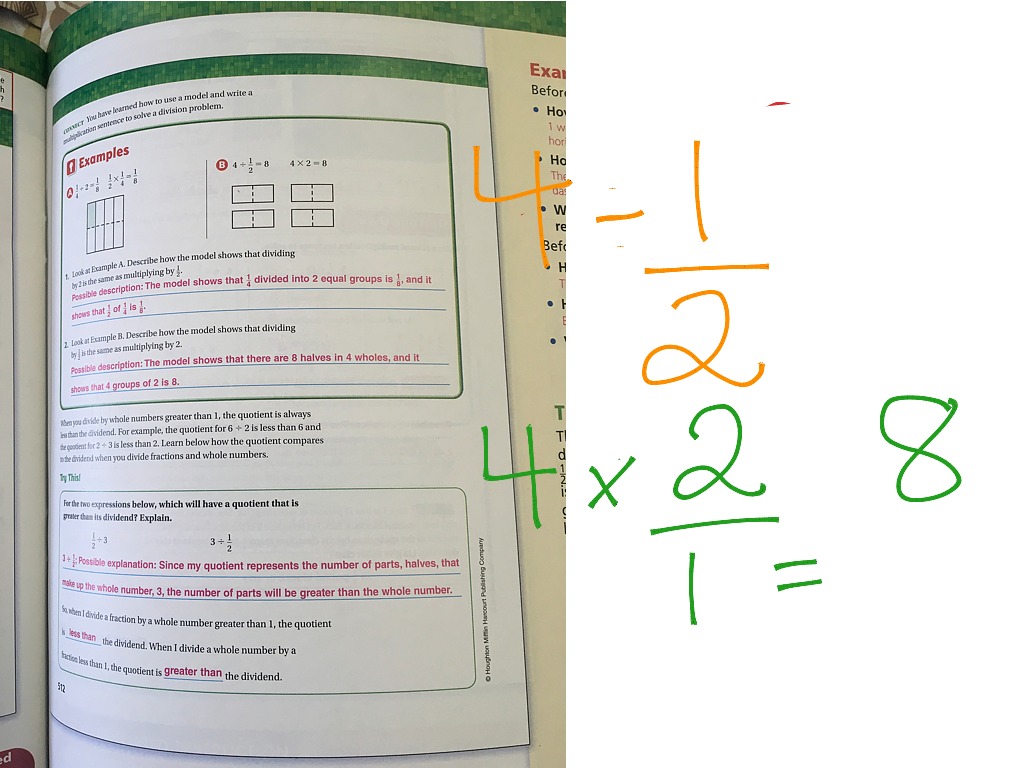 CONNECT You have learned how to use a model and write a
multiplication sentence to solve a division problem.
1 Examples
A 1/4 ÷ 2 = 1/8 1/2 × 1/4 = 1/8
B 4 ÷ 1/2 = 8 4 × 2 = 8
1. Look at Example A. Describe how the model shows that dividing
by 2 is the same as multiplying by 1/2.
Possible description: The model shows that 1/4 divided into 2 equal groups is 1/8, and it
shows that 1/2 of 1/4 is 1/8.
2. Look at Example B. Describe how the model shows that dividing
by 1/2 is the same as multiplying by 2.
Possible description: The model shows that there are 8 halves in 4 wholes, and it
shows that 4 groups of 2 is 8.
When you divide by whole numbers greater than 1, the quotient is always
less than the dividend. For example, the quotient for 6 ÷ 2 is less than 6 and
the quotient for 2 ÷ 3 is less than 2. Learn below how the quotient compares
to the dividend when you divide fractions and whole numbers.
Try This!
For the two expressions below, which will have a quotient that is
greater than its dividend? Explain.
1/2 ÷ 3 3 ÷ 1/2
3 ÷ 1/2; Possible explanation: Since my quotient represents the number of parts, halves, that
make up the whole number, 3, the number of parts will be greater than the whole number.
So, when I divide a fraction by a whole number greater than 1, the quotient
is less than the dividend. When I divide a whole number by a
fraction less than 1, the quotient is greater than the dividend.
512
© Houghton Mifflin Harcourt Publishing Company
Exa
Before
• Ho
1 w
hori
• Ho
The
das
• W
re
Befo
• H
T
• H
E
T
Th
d
ed
4 ÷ 1/2
4 × 2/1 = 8